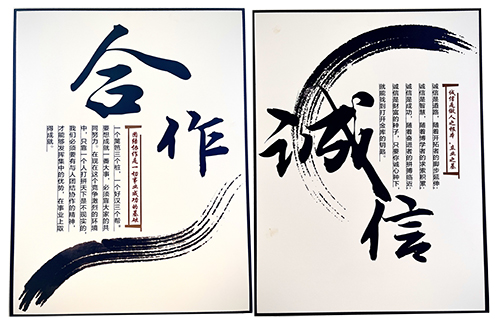 合作
团结协作是一切事业成功的基础
一个篱笆三个桩，一个好汉三个帮。
要想成就一番大事，必须靠大家的共
同努力。在现在这个竞争激烈的环境
中，只靠一个人打拼天下是不现实的，
我们必须要有与人团结协作的精神，
才能够发挥集中的优势，在事业上取
得成就。
诚信
诚信是做人之根本 立业之基
诚信是道路，随着开拓者的脚步延伸；
诚信是智慧，随着博学者的求索积累；
诚信是成功，随着奋进者的拼搏临近；
诚信是财富的种子，只要你诚心种下，
就能找到打开金库的钥匙。